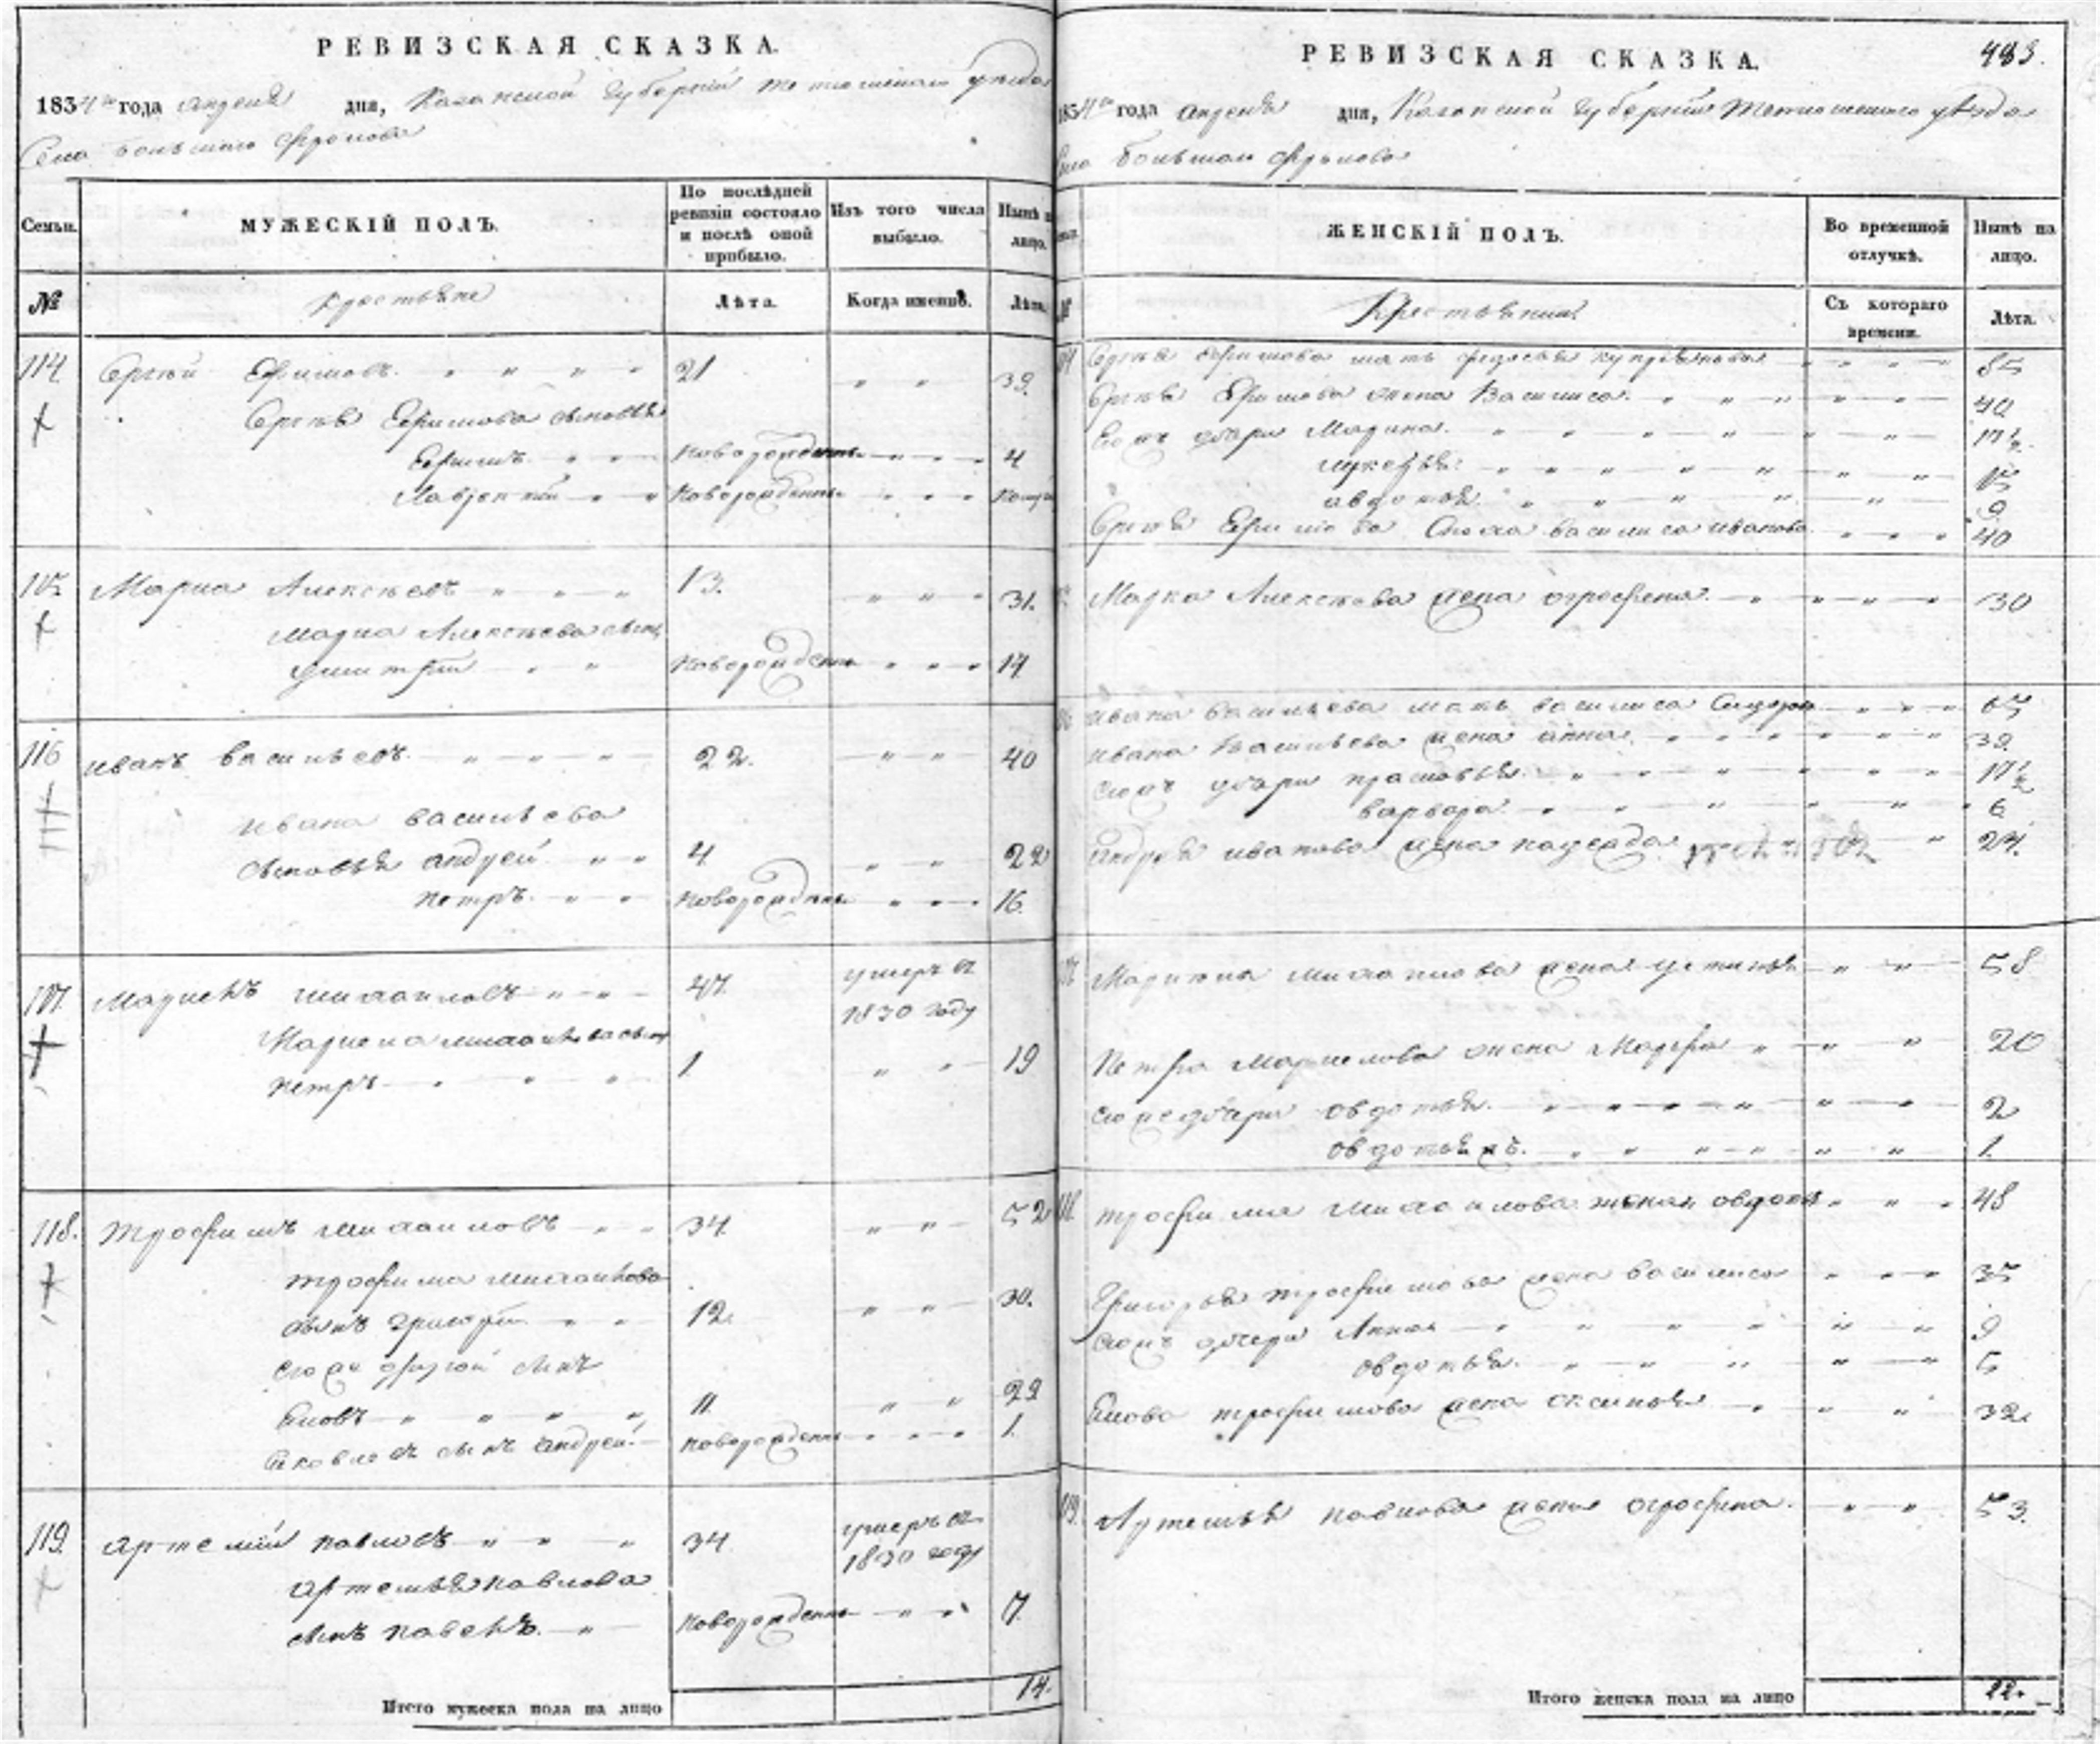 РЕВИЗСКАЯ СКАЗКА.
1834го года апреля дня, Казанской губернии Тетюшскаго уезда
Села Большаго Фролова
Семьи. МУЖЕСКІЙ ПОЛЪ. По послѣдней ревизіи состояло и послѣ оной прибыло. Изъ того числа выбыло. Нынѣ на лицо.
№ Крестьяне Лѣта. Когда именно. Лѣта.
114. Сергѣй Ефимовъ. 21 39.
Сергѣя Ефимова сыновья
Ефимъ новорожденъ 4
Лаврентій новорожденъ
115. Марка Алексѣевъ 13. 31.
Марка Алексѣева сынъ
Дмитрій новорожденъ 14
116 Иванъ Васильевъ 22. 40
Ивана Васильева
сыновья Андрей 4 22
Петръ новорожденъ 16.
117. Маркелъ Михайловъ 47. умеръ въ 1830 году
Маркела Михайлова сынъ
Петръ 1. 19
118. Трофимъ Михайловъ 34. 52
Трофима Михайлова
сынъ Григорій 12. 30.
его же другой сынъ
Яковъ 11. 29
Яковлевъ сынъ Андрей новорожденъ 1.
119. Артемій Павловъ 34 умеръ въ 1830 году
Артемья Павлова
сынъ Павелъ новорожденъ 7.
Итого мужеска пола на лицо 14.
РЕВИЗСКАЯ СКАЗКА. 483.
1834го года апреля дня, Казанской губернии Тетюшскаго уезда
Села Большаго Фролова
ЖЕНСКІЙ ПОЛЪ. Во временной отлучкѣ. Нынѣ на лицо.
№ Крестьянки Съ котораго времени. Лѣта.
Сергѣя Ефимова мать Федосья Купреянова 85
Сергѣя Ефимова жена Василиса. 40
Его жъ дочери Марина. 17½
Лукерья. 15
Авдотья. 9
Сергѣя Ефимова Сноха Василиса Иванова 40
Марка Алексѣева жена Огрофена 30
Ивана Васильева мать Василиса 65
Ивана Васильева жена Анна. 39.
его жъ дочери Прасковья 17½
Варвара 6
Андрея Иванова жена Надежда 24.
Маркела Михайлова жена Устинья 58
Петра Маркелова жена Марфа 20
его же дочери Овдотья. 2
Овдотья жъ. 1.
118. Трофима Михайлова жена Овдотья 48
Григорья Трофимова жена Василиса 35
его жъ дочери Анна 9
Овдотья. 5
Якова Трофимова жена Оксинья 32.
119. Артемья Павлова жена Огрофина. 53.
Итого женска пола на лицо 22.